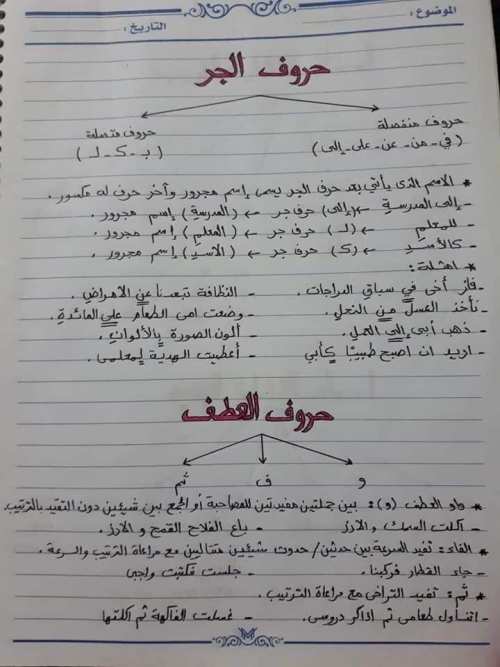 الموضوع :
التاريخ :
حروف الجر
حروف منفصلة
حروف متصلة
( في - من - عن - على - إلى )
( بـ - كـ - لـ )
* الاسم الذى يأتي بعد حرف الجر يسمى إسم مجرور وآخر حرف له مكسور .
- إلى المدرسةِ ← (إلى) حرف جر ← (المدرسةِ) إسم مجرور .
- للمعلمِ ← (لـ) حرف جر ← (المعلمِ) إسم مجرور .
- كالأسدِ ← (كـ) حرف جر ← (الأسدِ) إسم مجرور .
* امثلة :
- فاز أخى في سباقِ الدراجات .
- النظافة تبعدنا عن الامراضِ .
- نأخذ العسل من النحلِ .
- وضعت امى الطعام على المائدةِ .
- ذهب أبى إلى العملِ .
- ألون الصورة بالألوانِ .
- اريد ان اصبح طبيبًا كأبي
- أعطيت الهدية لمعلمى .
حروف العطف
و ف ثم
* واو العطف (و) : بين جملتين مفيدتين للمصاحبة أو الجمع بين شيئين دون التقيد بالترتيب .
- أكلت السمك والارز
- باع الفلاح القمح و الارز .
* الفاء : تفيد السرعة بين حدثين / حدوث شيئين متتاليين مع مراعاة الترتيب والسرعة .
- جاء القطار فركبنا .
- جلست فكتبت واجبى
* ثم : تفيد التراخى مع مراعاة الترتيب .
- اتناول طعامى ثم اذاكر دروسى .
- غسلت الفاكهة ثم اكلتها